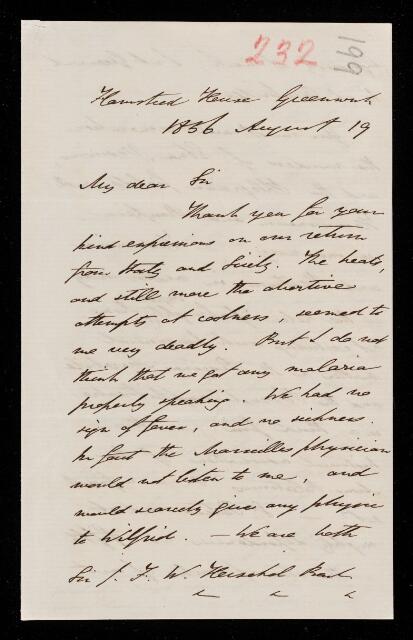 232
199
Flamsteed House Greenwich
1856 August 19
My dear Sir
Thank you for your
kind expressions on our return
from Italy and Sicily. The heats,
and still more the abortive
attempts at coolness, seemed to
me very deadly. But I do not
think that we got any malaria
properly speaking. We had no
sign of fever, and no sickness.
In fact the Marseilles physician
would not listen to me, and
would scarcely give any physic
to Wilfrid. — We are both
Sir J. F. W. Herschel Bart